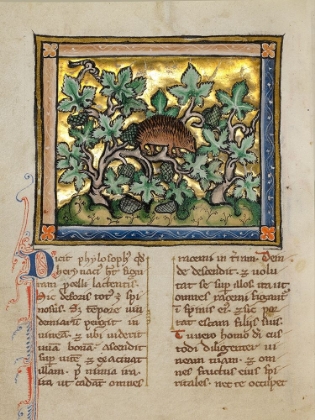 Dicit phylosophus qd
herynacius ht figu
ram porcelli lactentis.
Hic deforis totus est spi
nosus. Sed tempore uin
demiarum pergit in
uineam. et ubi uiderit
uuam bonam ascendit
sup uitem. et exacinat
illam. ita ut cadant omnes
racemi in terram. Dein
de descendit. et uolu
tat se sup illos ita ut
omnes racemi figantur
in spinis eius. et sic por
tat escam filiis suis.
Tu uero homo dei cus
todi diligenter ui
neam tuam. et om
nes fructus eius spi
ritales. nec te occupet